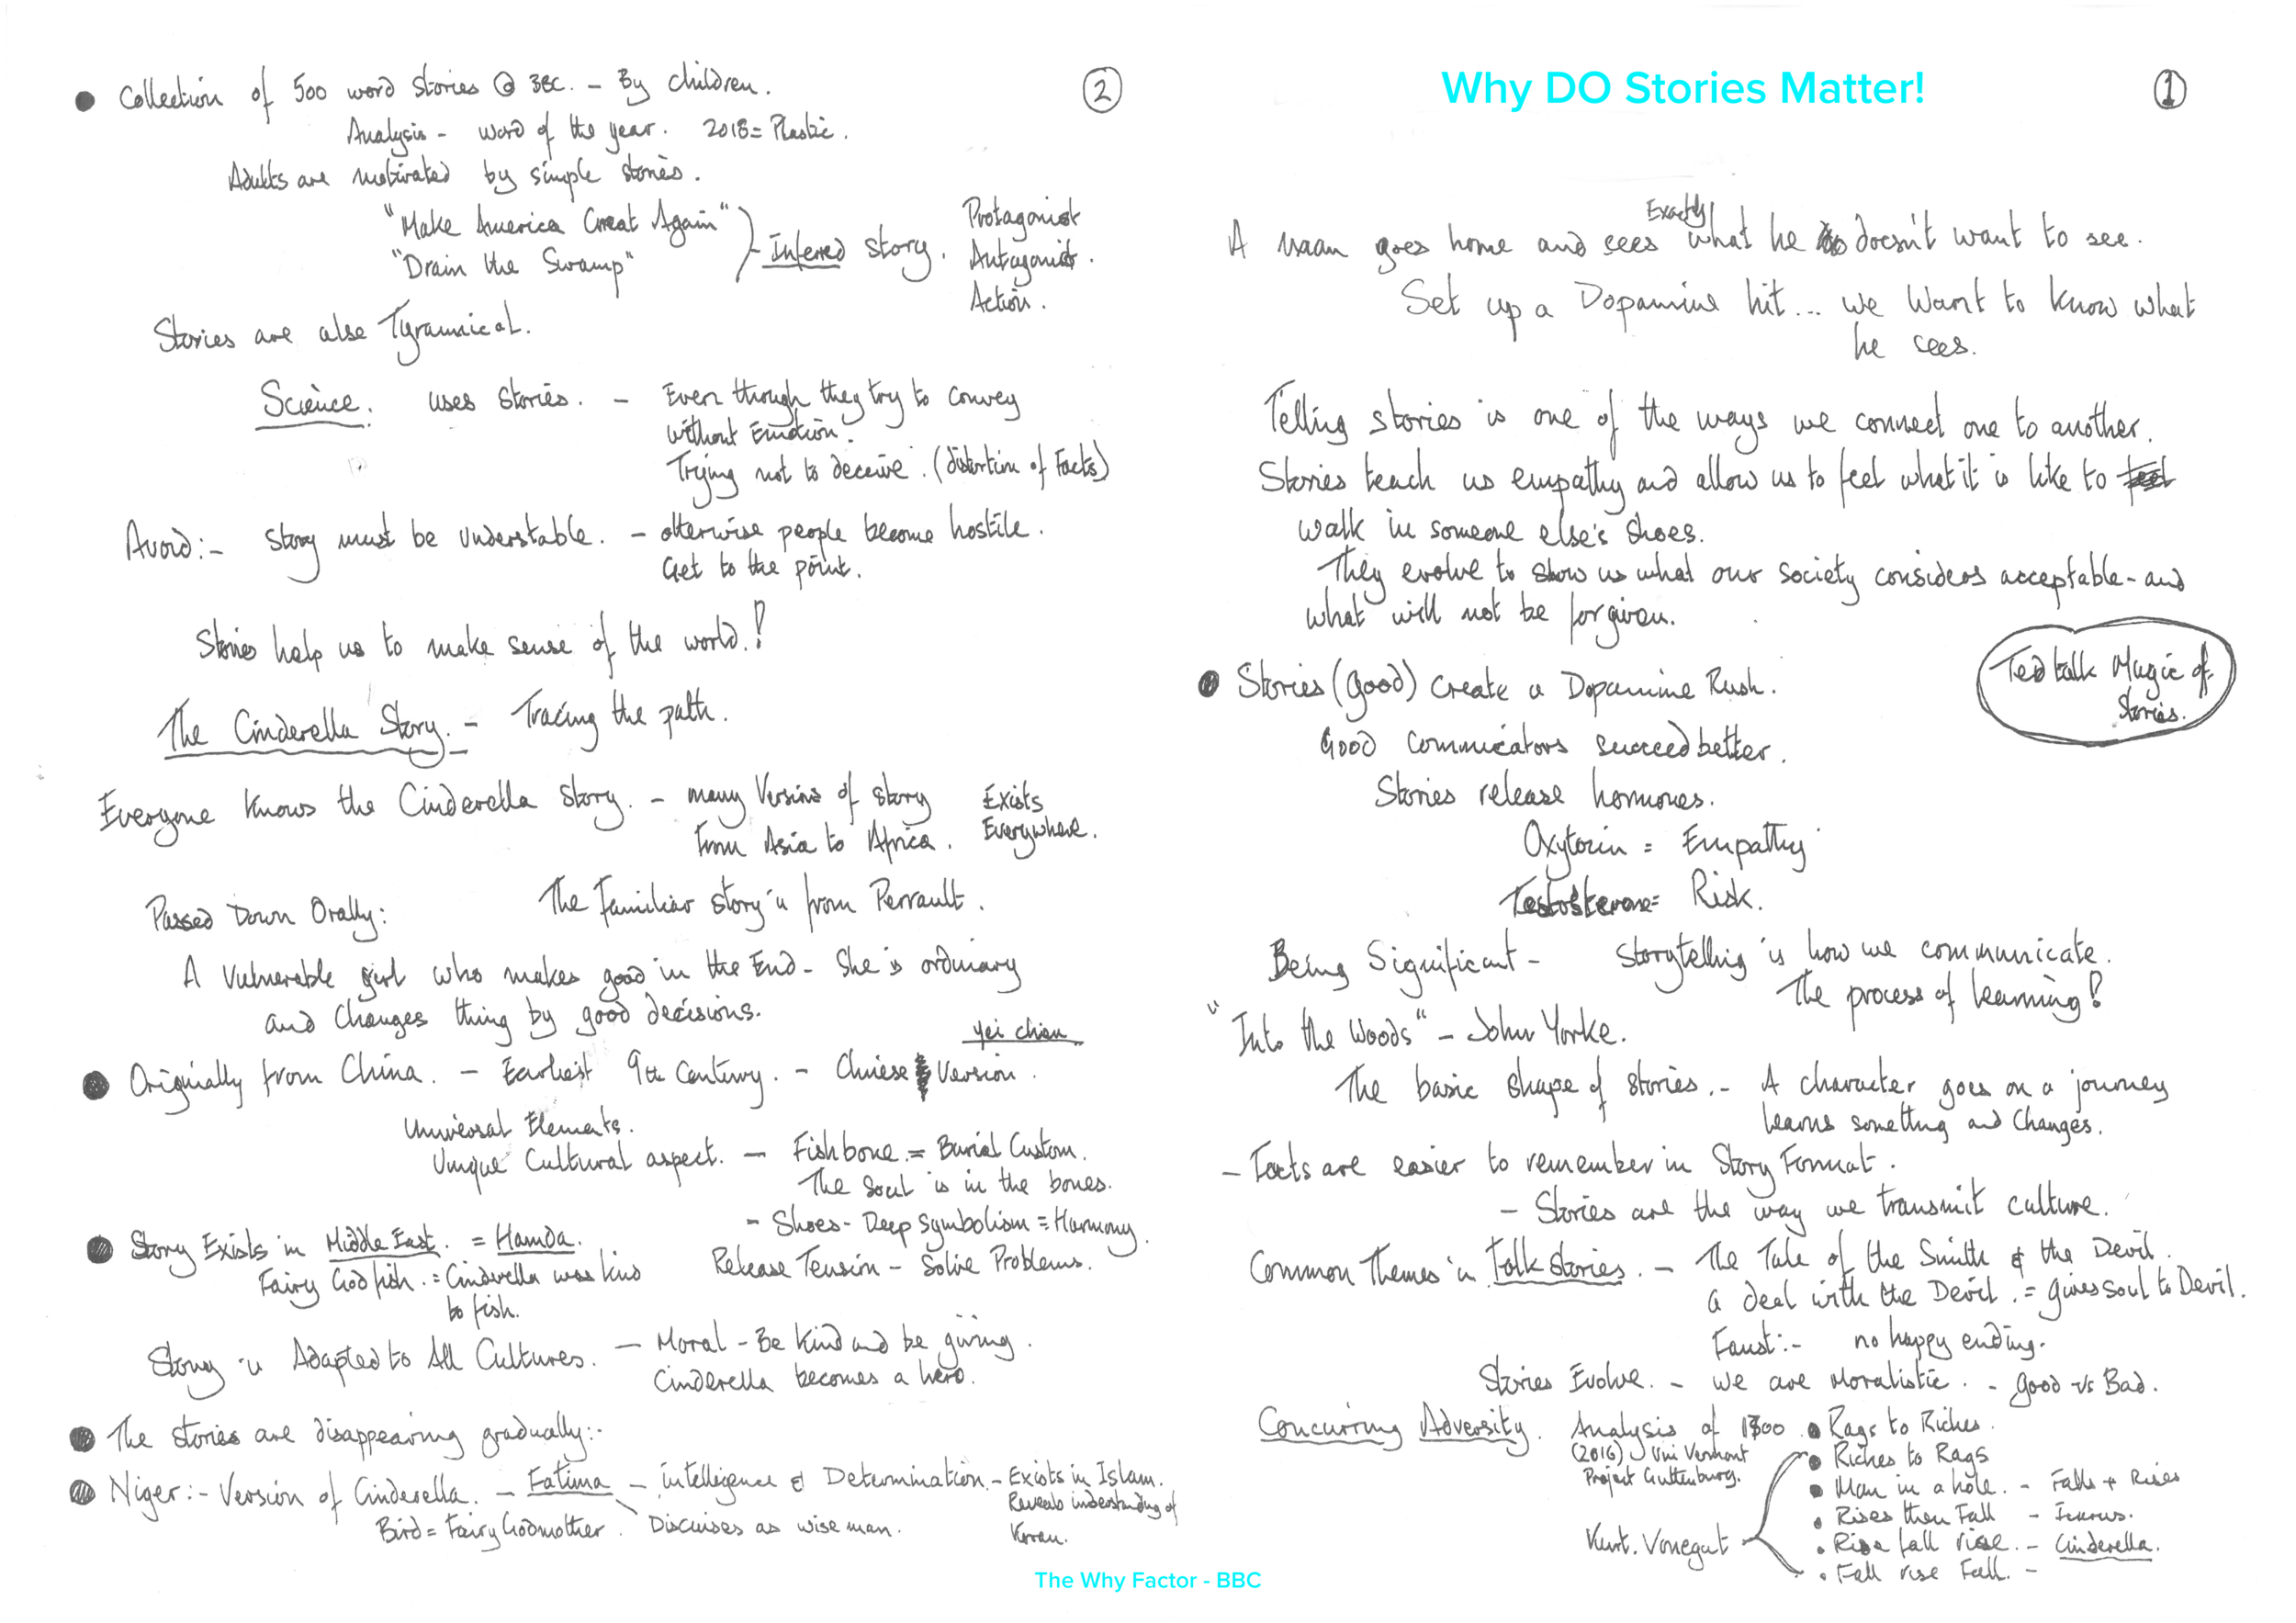 Why DO Stories Matter!
1
Exactly
A man goes home and sees what he doesn't want to see.
Set up a Dopamine hit... we want to know what
he sees.
Telling stories is one of the ways we connect one to another.
Stories teach us empathy and allow us to feel what it is like to feel
walk in someone else's shoes.
They evolve to show us what our society considers acceptable - and
what will not be forgiven.
Ted talk Magic of
Stories.
Stories (good) create a Dopamine Rush.
Good Commicators succeed better.
Stories release hormones.
Oxytocin = Empathy
Testosterone = Risk.
Being Significant - Storytelling is how we communicate.
The process of learning!
"Into the Woods" - John Yorke.
The basic shape of stories. - A character goes on a journey
learns something and changes.
- Facts are easier to remember in Story Format.
- Stories are the way we transmit culture.
Common Themes in Folk stories. - The Tale of the Smith & the Devil.
a deal with the Devil. = gives soul to Devil.
Faust:- no happy ending.
Stories Evolve. - we are moralistic. - good vs Bad.
Concurring Adversity. Analysis of 1300 • Rags to Riches.
(2016) Uni Vermont • Riches to Rags
Project Guttenburg. • Man in a hole. - Falls + Rises
• Rises then Fall - Icarus.
Kurt. Vonegut • Rise fall rise. - Cinderella.
• Fall rise Fall. -
2
• Collection of 500 word stories @ BBC. - By children.
Analysis - word of the year. 2018 = Plastic.
Adults are motivated by simple stories.
"Make America Great Again"
"Drain the Swamp"
Inferred story.
Protagonist
Antagonist.
Action.
Stories are also Tyrannical.
Science. uses stories. - Even though they try to convey
without Emotion.
Trying not to deceive. (distortion of Facts)
Avoid:- Story must be understable. - otherwise people become hostile.
Get to the point.
Stories help us to make sense of the world.!
The Cinderella Story. - Tracing the path.
Everyone knows the Cinderella story. - many versions of story
from Asia to Africa.
Exists
Everywhere.
Passed Down Orally: The Familiar story is from Perrault.
A vulnerable girl who makes good in the End - She is ordinary
and changes thing by good decisions.
yei chien
• Originally from China. - Earliest 9th Century. - Chinese Version.
Universal Elements.
Unique Cultural aspect. - Fishbone. = Burial Custom.
The Soul is in the bones.
- Shoes - Deep symbolism = Harmony.
Release Tension - Solve Problems.
• Story Exists in Middle East. = Hamda.
Fairy Godfish. = Cinderella was kind
to fish.
Story is Adapted to All Cultures. - Moral - Be kind and be giving.
Cinderella becomes a hero.
• The stories are disappearing gradually:-
• Niger:- Version of Cinderella. - Fatima - intelligence & Determination - Exists in Islam.
Reveals inderstanding of
Koran.
Bird = Fairy Godmother. Discuises as wise man.
The Why Factor - BBC